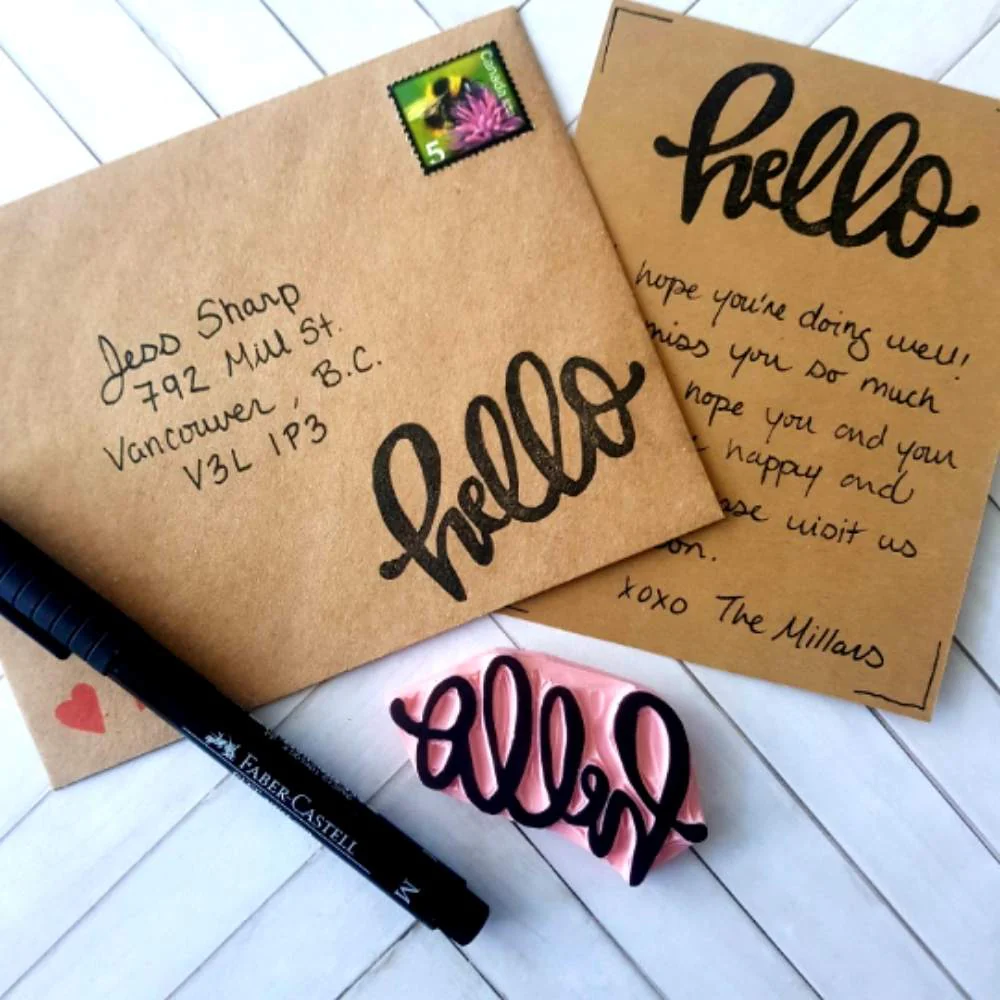 Canada
5
Jess Sharp
792 Mill St.
Vancouver, B.C.
V3L 1P3
hello
hello
hope you're doing well!
miss you so much
hope you and your
happy and
visit us
xoxo The Millars
hello
FABER-CASTELL
M